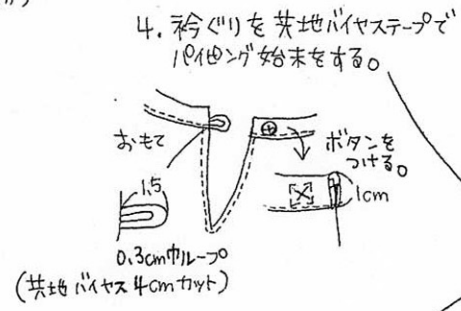 4. 衿ぐりを共地バイヤステープで
パイピング始末をする。
おもて
ボタンを
つける。
1.5
1cm
0.3cm巾ループ
(共地バイヤス4cmカット)